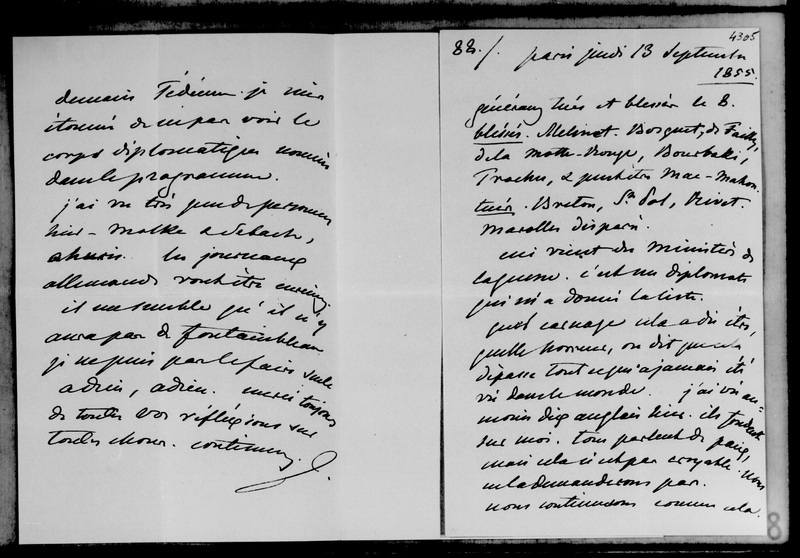 4305
88./. paris jeudi 13 Septembre
1855.
généraux tués et blessés le 8.
blessés. Melinet. Bosquet, de Failly,
de la Motte-Rouge, Bourbaki,
Trochu, & peut être Mac-Mahon.
tués. Breton, St Pol, Rivet.
Marolles disparu.
ceci vient du Ministère de
la guerre. c'est un diplomate
qui m'a donné la liste.
quel carnage cela a dû être,
quelle horreur, on dit que cela
dépasse tout ce qui a jamais été
vu dans le monde. j'ai vu au
moins dix anglais hier. ils fondent
sur moi. tous parlent de paix,
mais cela n'est pas croyable. nous
ne la demanderons pas.
nous continuerons comme cela.
8
demain Tédéum. je suis
étonnée de ne pas voir le
corps diplomatique nommé
dans le programme.
j'ai vu très peu de personnes
hier. Molke & Sebach,
ahuris. les journaux
allemands vont être
il me semble qu'il n'y
aura pas de fontainebleau.
je ne puis pas le faire seule
adieu, adieu. merci toujours
de toutes vos réflexions sur
toutes choses. continuez. J.